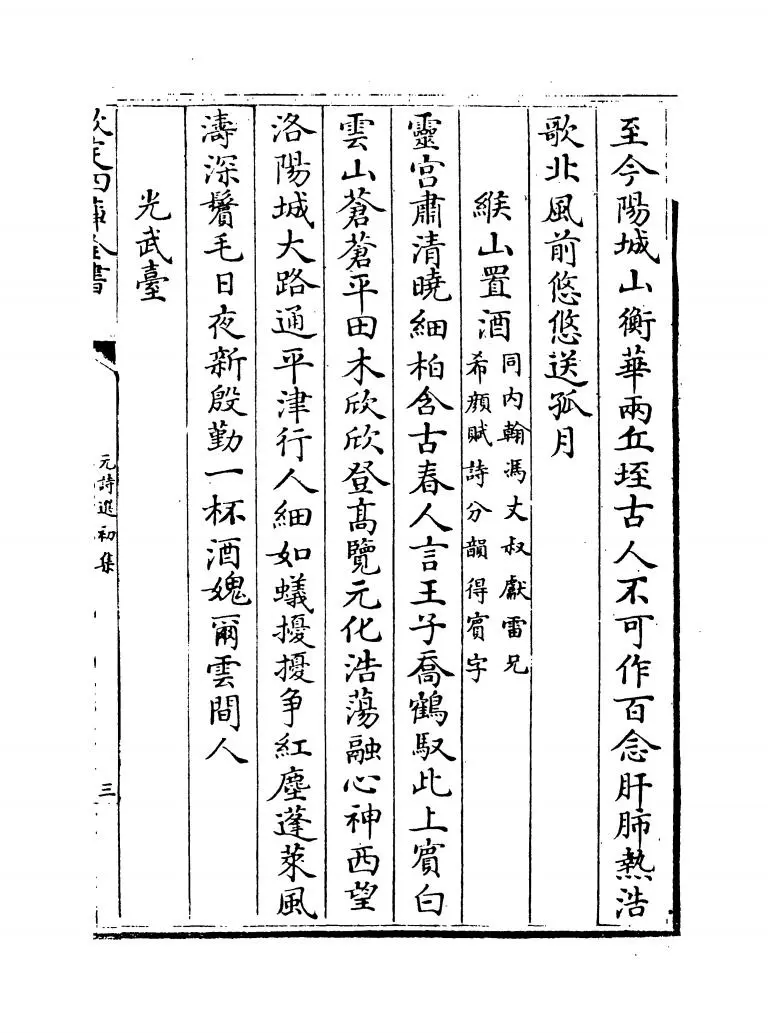 至今陽城山衡華兩丘垤古人不可作百念肝肺熱浩
歌北風前悠悠送孤月
緱山置酒
同内翰馮丈叔獻雷兄
希顔賦詩分韻得賓字
靈宫肅清曉細柏含古春人言王子喬鶴馭此上賓白
雲山蒼蒼平田木欣欣登高覽元化浩蕩融心神西望
洛陽城大路通平津行人細如蟻擾擾争紅塵蓬萊風
濤深鬢毛日夜新殷勤一杯酒媿爾雲間人
光武臺
欽定四庫全書
元詩選初集
三